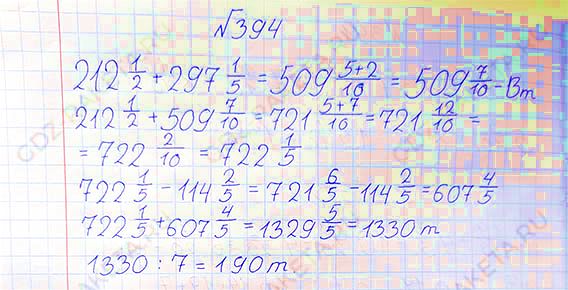 №394
212 1/2 + 297 1/5 = 509 5+2/10 = 509 7/10 - Вт
212 1/2 + 509 7/10 = 721 5+7/10 = 721 12/10 =
= 722 2/10 = 722 1/5
722 1/5 - 114 2/5 = 721 6/5 - 114 2/5 = 607 4/5
722 1/5 + 607 4/5 = 1329 5/5 = 1330 т
1330 : 7 = 190 т